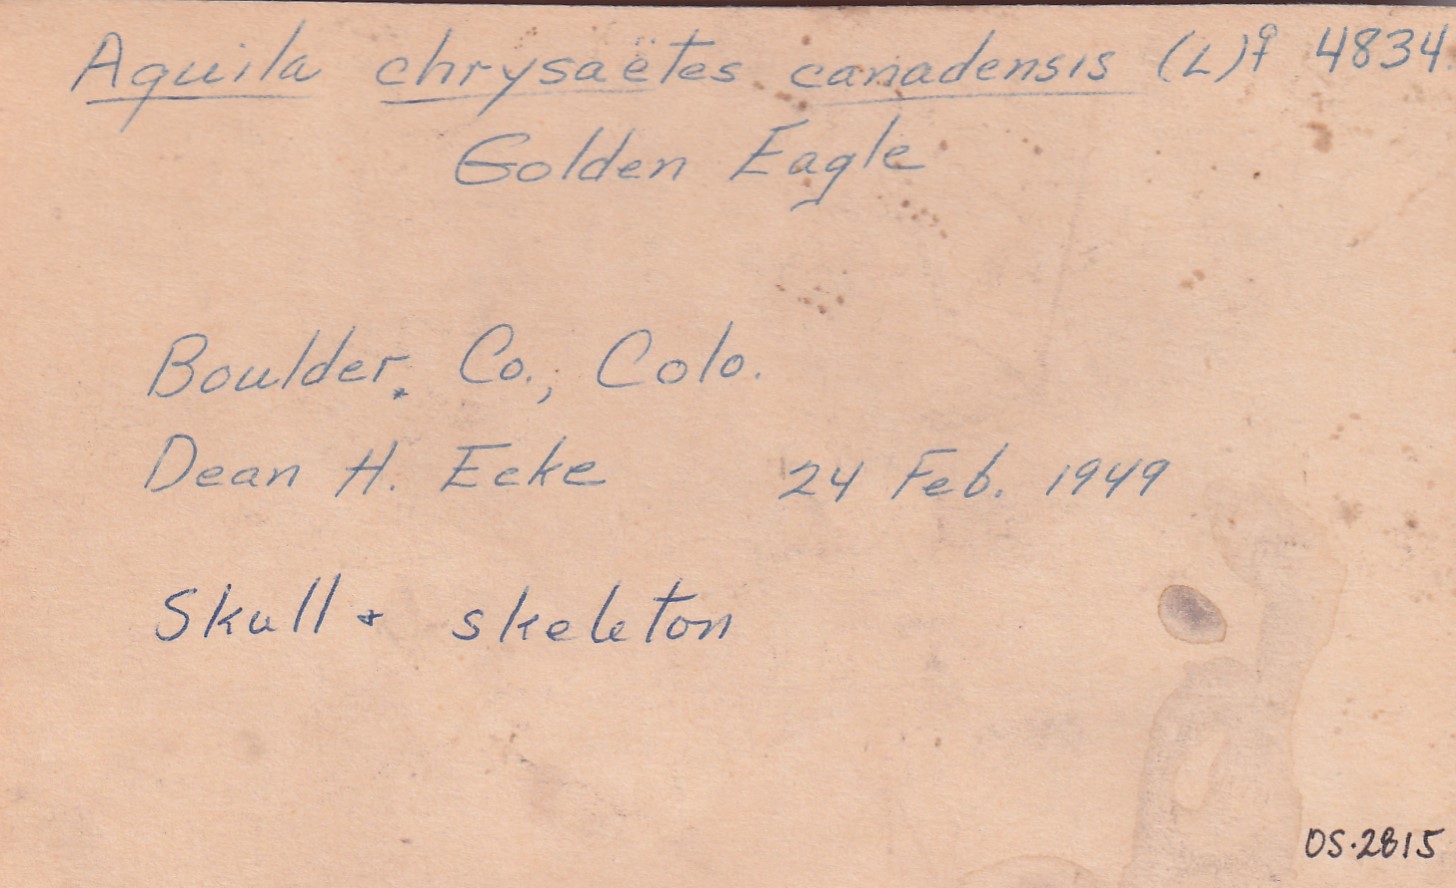 Aquila chrysaëtes canadensis (L) ♀ 4834
Golden Eagle
Boulder. Co., Colo.
Dean H. Ecke 24 Feb. 1949
Skull & skeleton
OS.2815